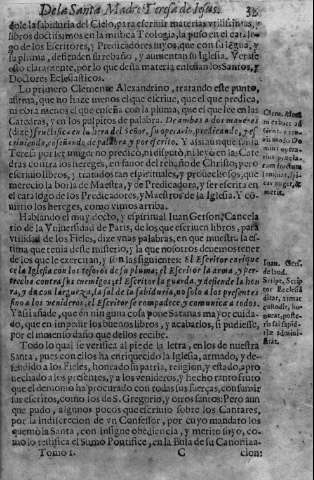 De la Santa Madre Teresa de Iesus.
dole la sabiduria del Cielo, para escriuir materias vtilissimas, y
libros doctissimos en la mistica Teologia, la puso en el catalo-
go de los Escritores, y Predicadores suyos, que con su legua, y
la pluma, defienden su rebaño, y aumentan su Iglesia. Verase
esso claramente, por lo que desta materia enseñan los Santos, y
Doctores Eclesiasticos.
Lo primero Clemente Alexandrino, tratando este punto,
afirma, que no haze menos el que escriue, que el que predica,
ni obra menos el que enseña con la pluma, que el que lee en las
Catedras, y en los pulpitos de palabra. De ambas a dos maneras
(dize) fructifica en la obra del Señor, su operario, predicando, y es-
criuiendo, enseñando de palabra, y por escrito. Y assi aunque santa
Teresa por ser muger no predicò, ni disputò, ni leyò en las Cate-
dras contra los hereges, en fauor del rebaño de Christo; pero
escriuio libros, y tratados tan espirituales, y prouechosos, que
mereciò la borla de Maestra, y de Predicadora, y ser escrita en
el catalogo de los Predicadores, y Maestros de la Iglesia. Y co-
mo los hereges, como vimos arriba.
Hablando el muy docto, y espiritual Iuan Gerson, Cancela
rio de la Vniuersidad de Paris, de los que escriuen libros, para
vtilidad de los Fieles, dize vnas palabras, en que muestra la es-
tima que tenia deste misterio, y la que nosotros deuemos tener
de los que le exercitan, y son las siguientes: El Escritor enrique
ce la Iglesia con los tesoros de su pluma; el Escritor la arma, y per-
trecha contra sus enemigos; el Escritor la guarda, y defiende la hon
ra, y da con larguezа la sal de la sabiduria, no solo a los presentes
sino a los venideros; el Escritor se compadece, y comunica a todos.
Y assi añade, que en ninguna cosa pone Satanas mayor cui-
dado, que en impedir los buenos libros, y acabarlos, si pudiesse,
por el inmenso daño que dellos recibe.
Todo lo qual se verifica al pie de la letra, en los de nuestra
Santa, pues con ellos ha enriquecido la Iglesia, armado, y de-
fendido a los Fieles, honrado su patria, religion, y estado, apro
uechado a los presentes, y a los venideros, y hecho tanto fruto
que el demonio ha procurado con todas sus fuerças, consumir
sus escritos, como los de S. Gregorio, y otros santos: Pero aun
que pudo, algunos pocos que escriuio sobre los Cantares,
por la indiscrecion de vn Confessor, por cuyo mandado los
quemò la Santa, con insigne obediencia, y merito suyo, co-
mo lo testifica el Sumo Pontifice, en la Bula de su Canoniza-
Tomo 1. C cion:
Clem. Alex.
Ioan. Gers.